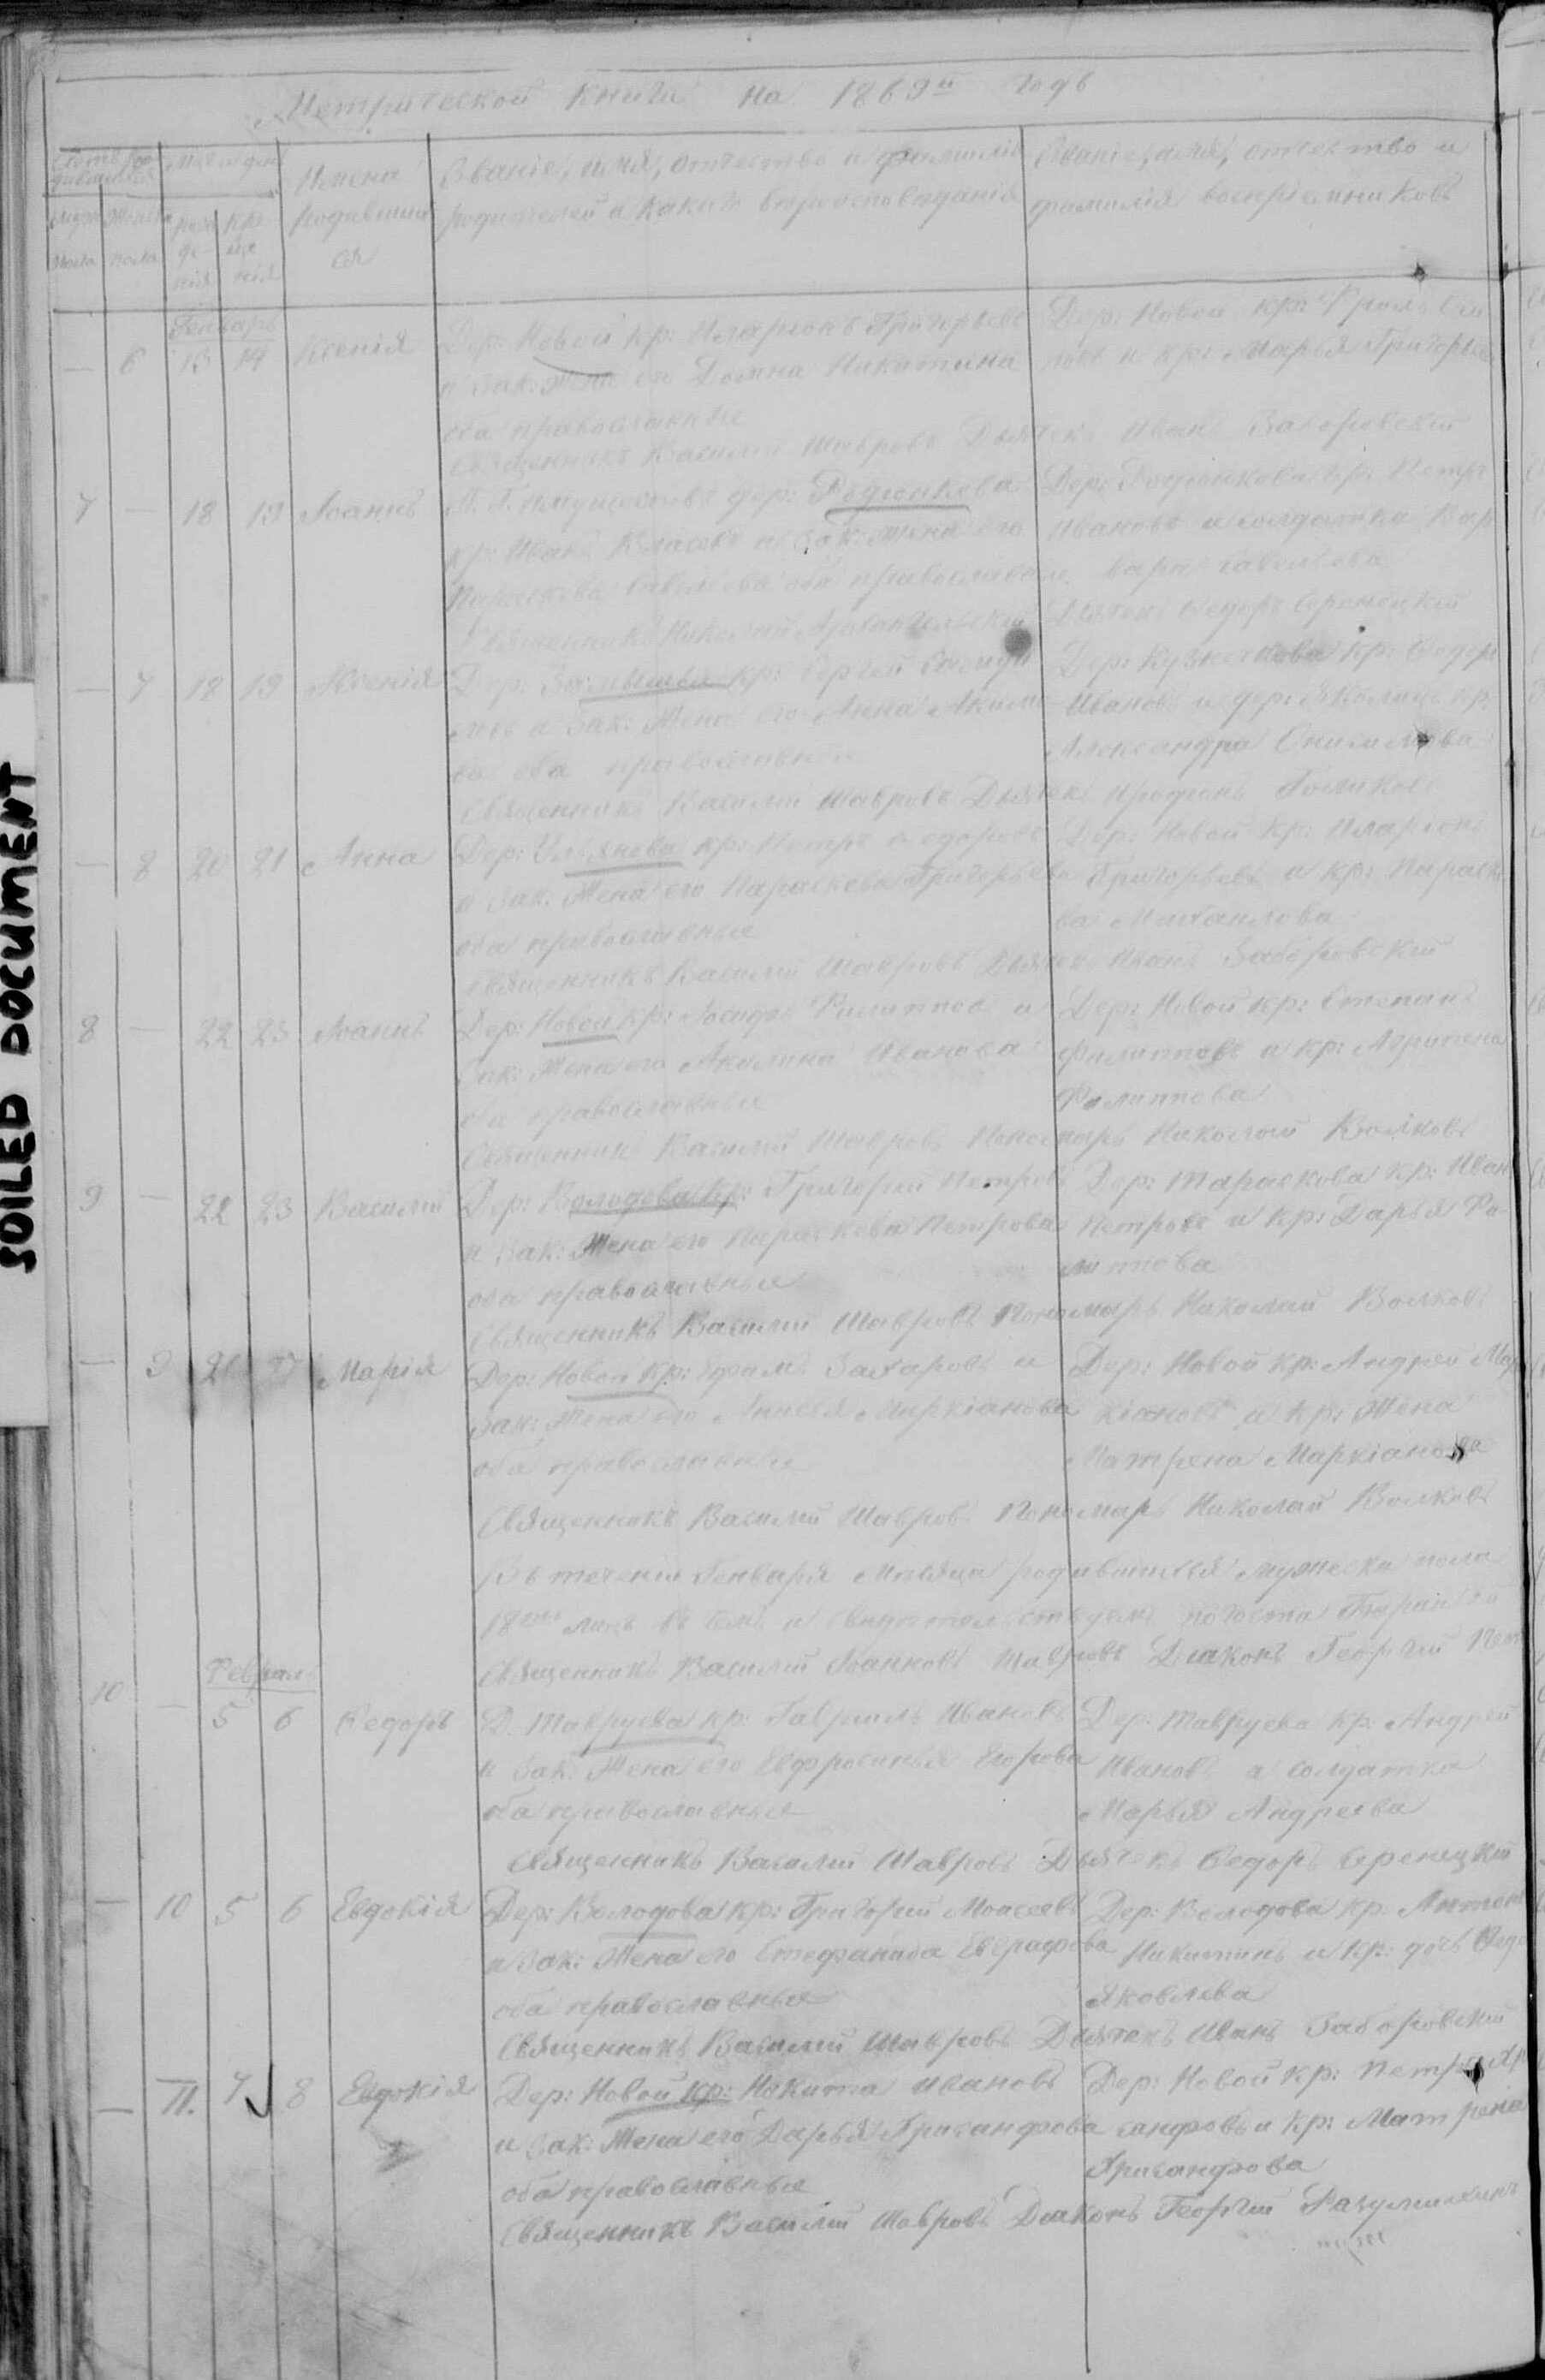 Метрической книги на 1869й годъ
Счетъ родившихся
Мѣс. и день
Имена родившихся
Званіе, имя, отчество и фамилія родителей и какого вѣроисповѣданія
Званіе, имя, отчество и фамилія воспріемниковъ
Мужеска пола
Женска пола
рожденія
крещенія
Генварь
— 6 13 14 Ксенія
Дер: Новой кр: Иларіонъ Григорьевъ
и зак: жена его Домна Никитина
оба православные
Дер: Новой кр: Фролъ
и кр: Марья Григорьева
Священникъ Василій Шавровъ Дьячекъ Иванъ Заборовскій
7 — 18 19 Іоаннъ
Г. Имуществъ дер: Родіонкова
кр: Иванъ Власовъ и зак: жена его
Параскева Савельева оба православные
Дер: Родіонкова кр: Петръ
Ивановъ и солдатка Варвара Савельева
Священникъ Николай Архангельскій Дьячекъ Ѳедоръ Серенецкій
— 7 18 19 Ксенія
Дер: Замытья кр: Сергей
и зак: жена его Анна Акимова
оба православные
Дер: Кузнечкова кр: Ѳедоръ
Ивановъ и дер: кр:
Александра Онисимова
Священникъ Василій Шавровъ Дьячекъ Иродіонъ Голиковъ
— 8 20 21 Анна
Дер: Ульянова кр: Петръ Ѳедоровъ
и зак: жена его Параскева Григорьева
оба православные
Дер: Новой кр: Иларіонъ
Григорьевъ и кр: Параскева Михайлова
Священникъ Василій Шавровъ Дьячекъ Иванъ Заборовскій
8 — 22 23 Іоаннъ
Дер: Новой кр: Іосифъ Филипповъ и
зак: жена его Акилина Иванова
оба православные
Дер: Новой кр: Степанъ
Филипповъ и кр: Агрипена
Филиппова
Священникъ Василій Шавровъ Пономарь Николай Волковъ
9 — 22 23 Василій
Дер: Володева кр: Григорій Петровъ
и зак: жена его Параскева Петрова
оба православные
Дер: Тараскова кр: Иванъ
Петровъ и кр: Дарья Филиппова
Священникъ Василій Шавровъ Пономарь Николай Волковъ
— 9 26 27 Марія
Дер: Новой кр: Ефимъ Захаровъ и
зак: жена его Анисья Маркіанова
оба православные
Дер: Новой кр: Андрей Маркіановъ и кр: жена
Матрена Маркіанова
Священникъ Василій Шавровъ Пономарь Николай Волковъ
Въ теченіи Генваря мѣсяца родившихся мужеска пола
18ть лицъ въ чемъ и свидѣтельствуемъ погоста
Священникъ Василій Іоанновъ Шавровъ Діаконъ Георгій
Февраль
10 — 5 6 Ѳедоръ
Д. Тавруева кр: Гавріилъ Ивановъ
и зак: жена его Евфросинья Егорова
оба православные
Дер: Тавруева кр: Андрей
Ивановъ и солдатка
Марья Андреева
Священникъ Василій Шавровъ Дьячекъ Ѳедоръ Серенецкій
— 10 5 6 Евдокія
Дер: Володова кр: Григорій Моисеевъ
и зак: жена его Стефанида Евграфова
оба православные
Дер: Володова кр: Антонъ
Никитинъ и кр: дочь
Яковлева
Священникъ Василій Шавровъ Дьячекъ Иванъ Заборовскій
— 11. 7 8 Евдокія
Дер: Новой кр: Никита Ивановъ
и зак: жена его Дарья Хрисанфова
оба православные
Дер: Новой кр: Петръ Хрисанфовъ и кр: Матрена
Хрисанфова
Священникъ Василій Шавровъ Діаконъ Георгій
SOILED DOCUMENT